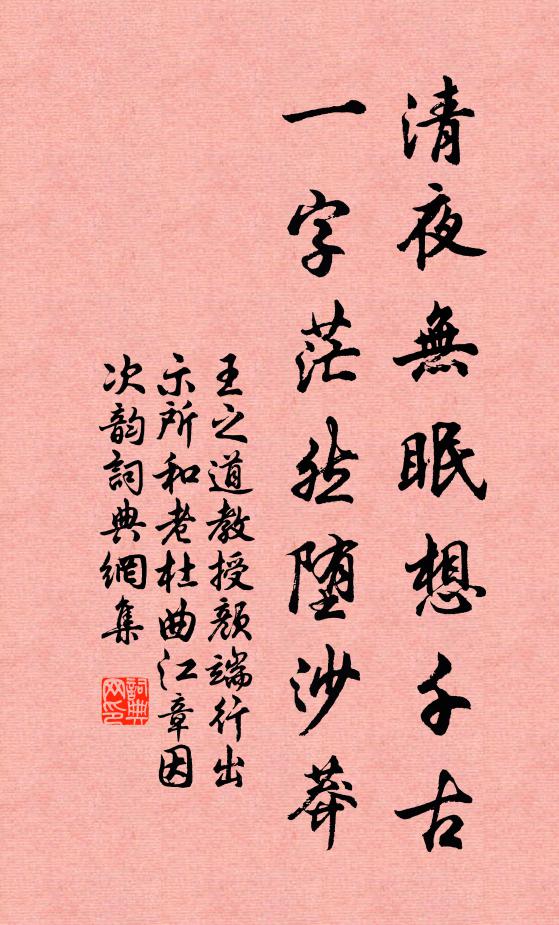 清夜無眠想千古
一字茫然墮沙莽
王之道教授顏端行出
示所和老杜曲江章因
次韵詞典網集
詞典
网印